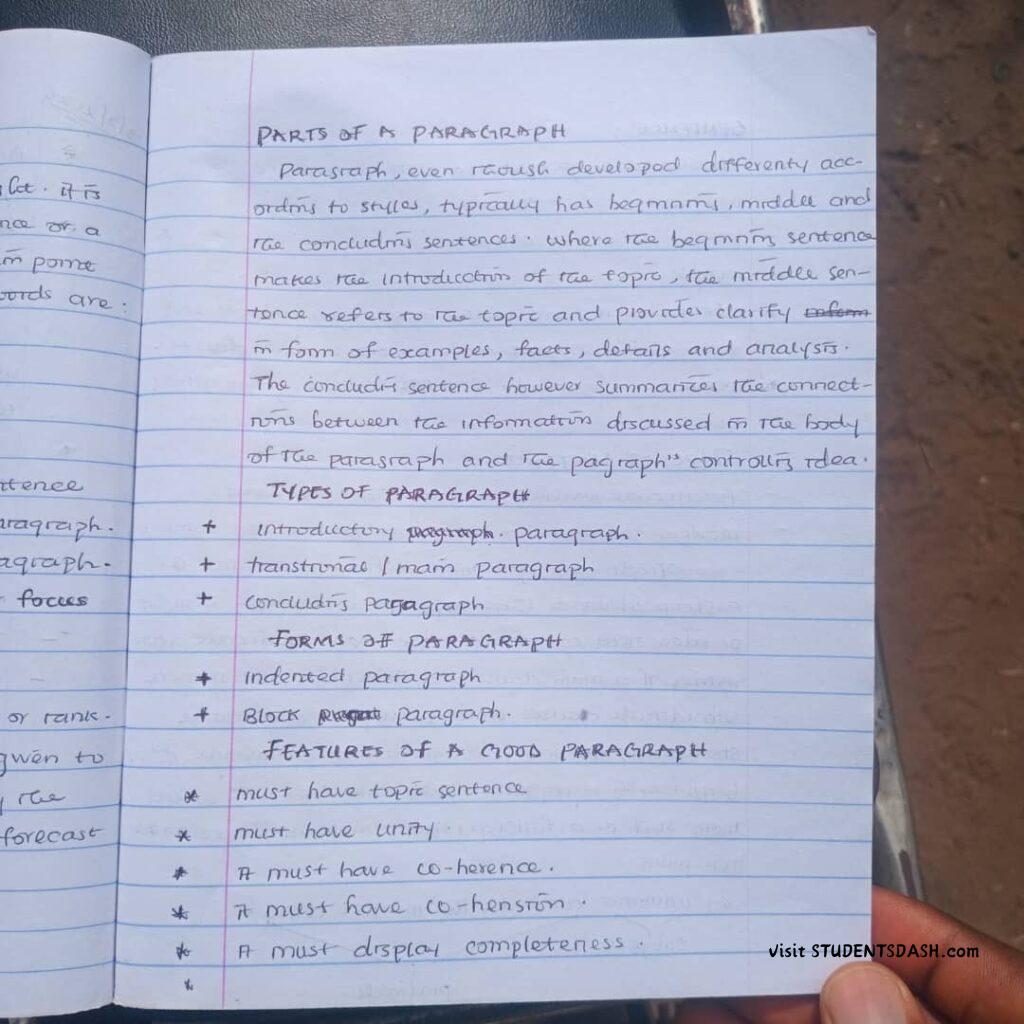 lot. it is
nce or a
in point
words are:
ttence
aragraph.
agraph.
focus
or rank.
given to
the
forecast
PARTS OF A PARAGRAPH
Paragraph, even though developed differenty acc-
ording to styles, typically has beginning, middle and
the concluding sentences. where the beginning sentence
makes the introduction of the topic, the middle sen-
tence refers to the topic and provides clarify
in form of examples, facts, details and analysis.
The concludin sentence however summarizes the connect-
ions between the information discussed in the body
of the paragraph and the pagraph's controlling idea.
TYPES OF PARAGRAPH
+ introductory paragraph. paragraph.
+ transtional / main paragraph
+ concluding pagagraph
FORMS OF PARAGRAPH
+ indented paragraph
+ BLOCK paragraph.
FEATURES OF A GOOD PARAGRAPH
* must have topic sentence
* must have unity.
* It must have co-herence.
* it must have co-hension.
* It must display completeness.
*
visit STUDENTSDASH.com